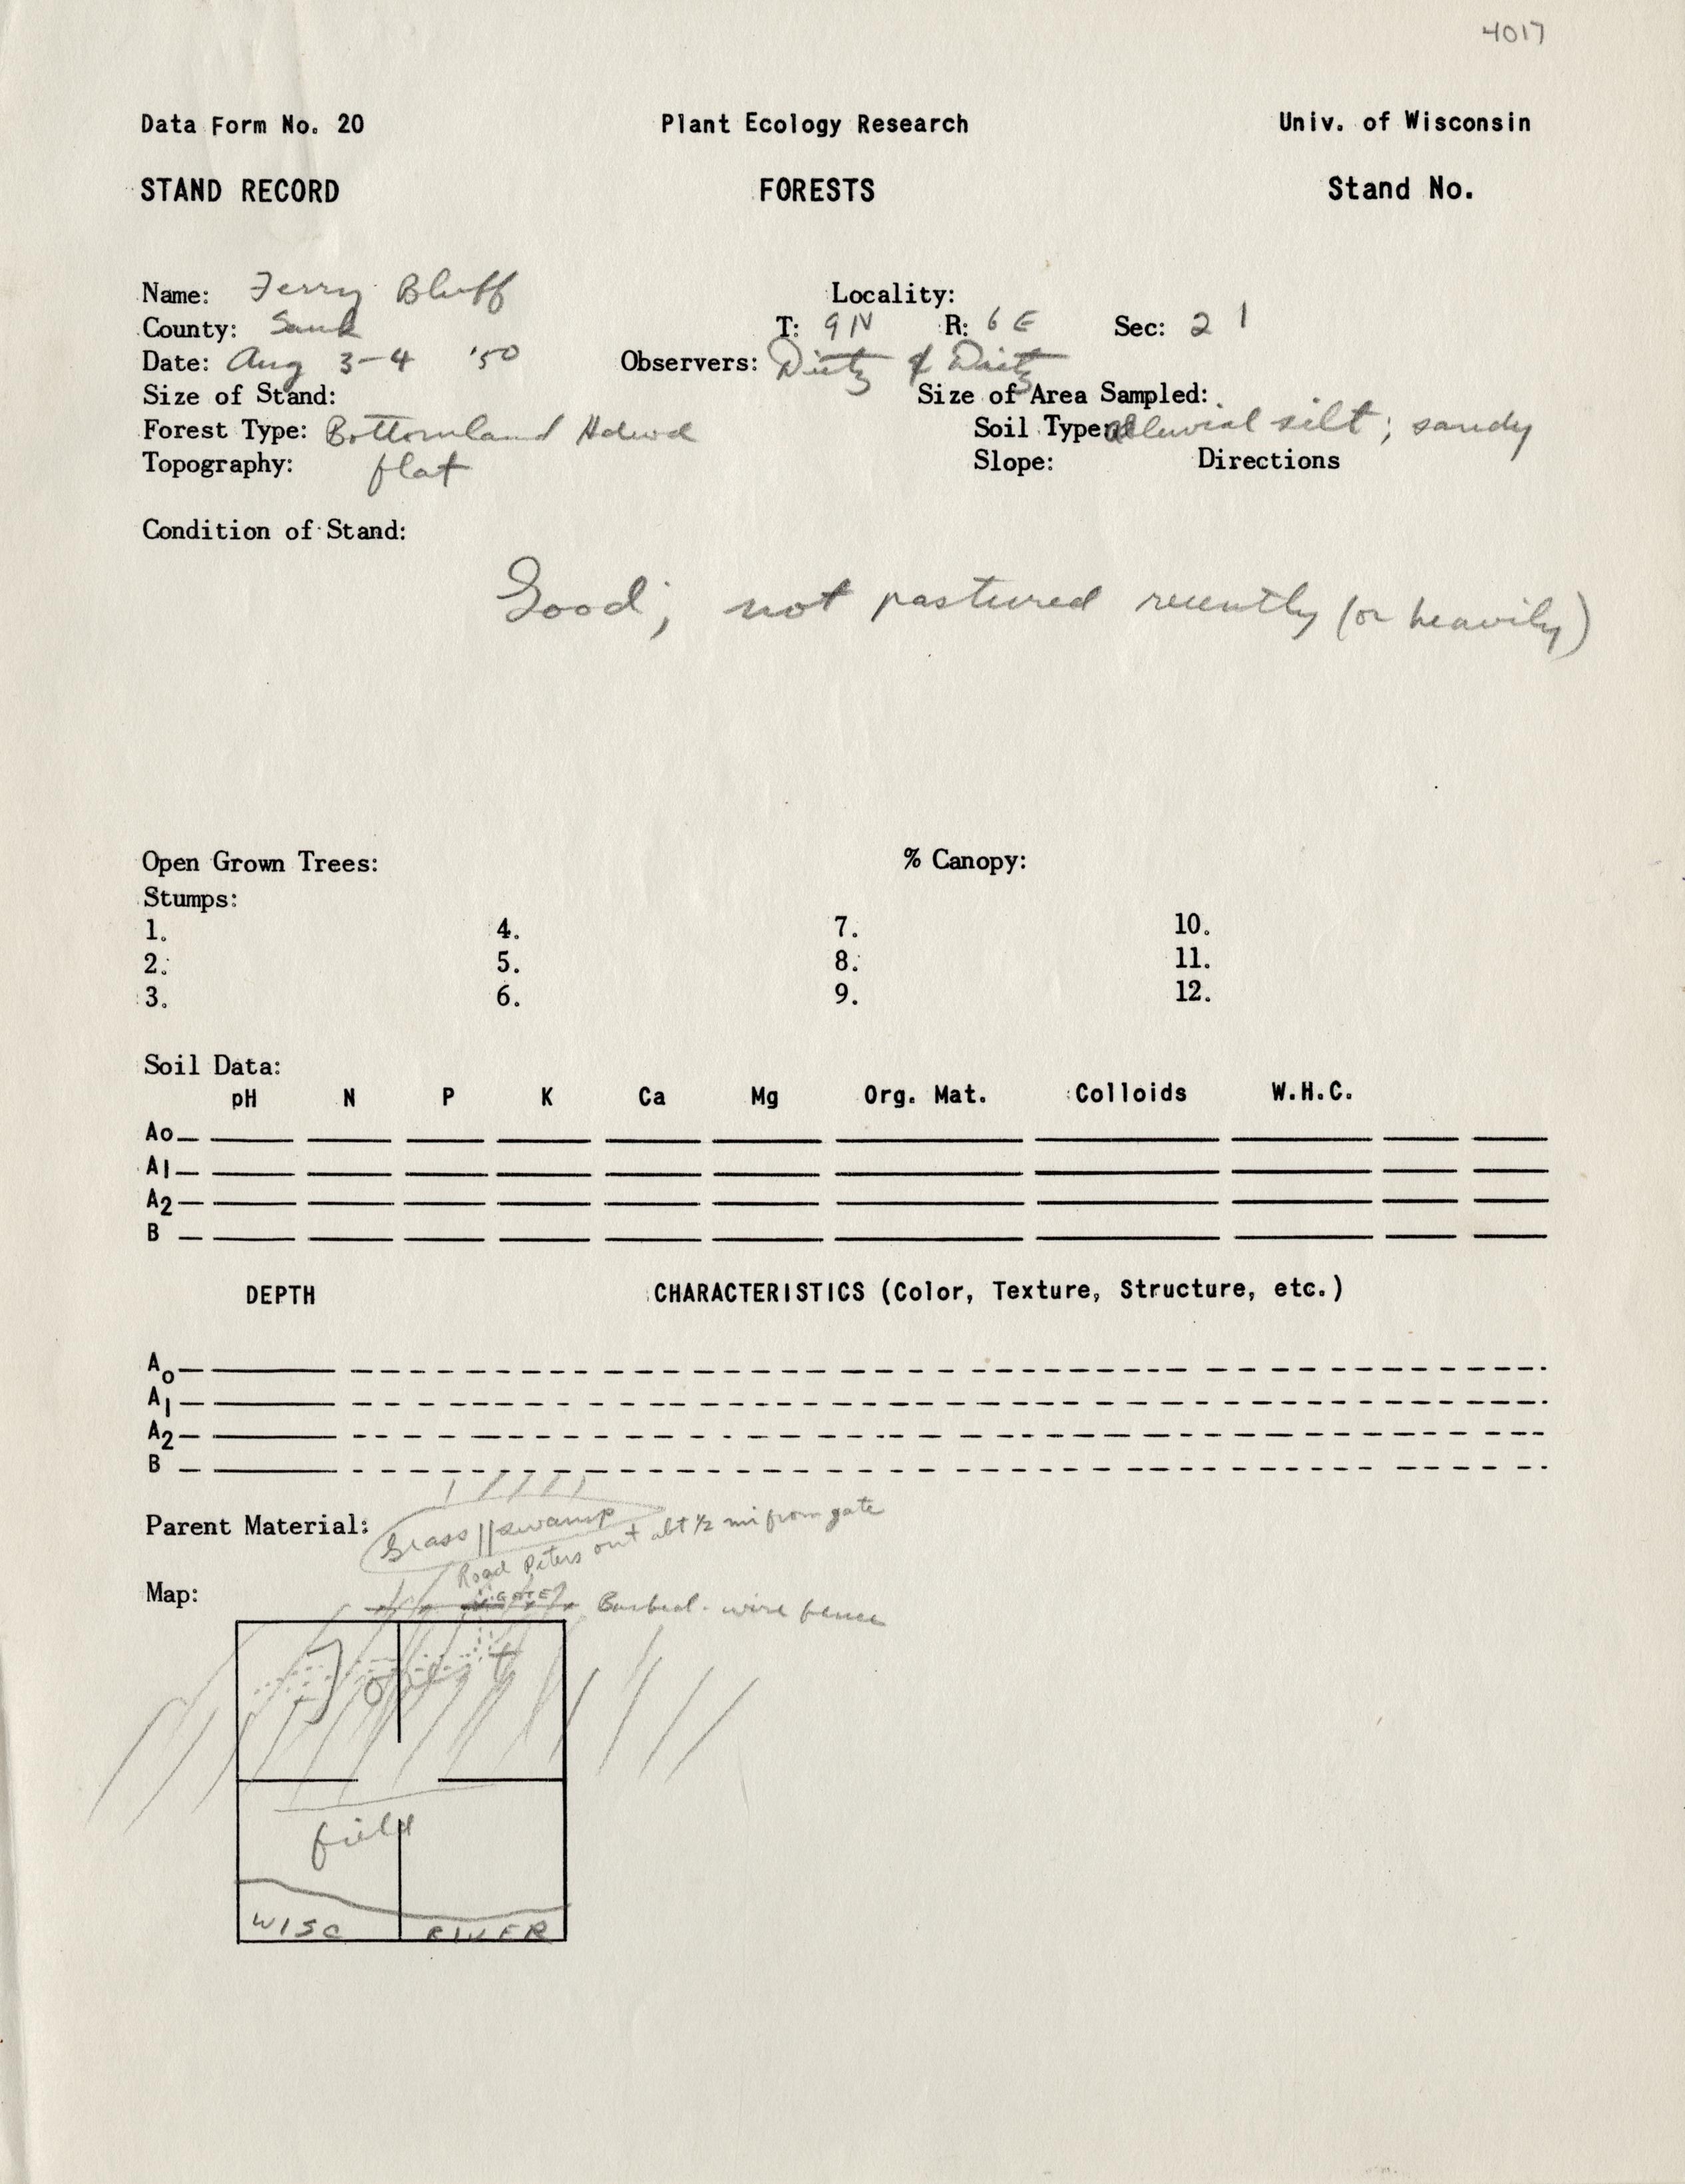 4017
Data Form No. 20 Plant Ecology Research Univ. of Wisconsin
STAND RECORD FORESTS Stand No.
Name: Ferry Bluff Locality:
County: Sauk T: 9N R: 6E Sec: 21
Date: Aug 3-4 '50 Observers: Dietz & Dietz
Size of Stand: Size of Area Sampled:
Forest Type: Bottomland Hdwd Soil Type: alluvial silt; sandy
Topography: flat Slope: Directions
Condition of Stand:
Good; not pastured recently (or heavily)
Open Grown Trees: % Canopy:
Stumps:
1. 4. 7. 10.
2. 5. 8. 11.
3. 6. 9. 12.
Soil Data:
pH N P K Ca Mg Org. Mat. Colloids W.H.C.
Ao
A1
A2
B
DEPTH CHARACTERISTICS (Color, Texture, Structure, etc.)
Ao
A1
A2
B
Parent Material:
Grass swamp
Road Peters out abt 1/2 mi from gate
Map:
GATE
Barbed-wire fence
field
WISC RIVER